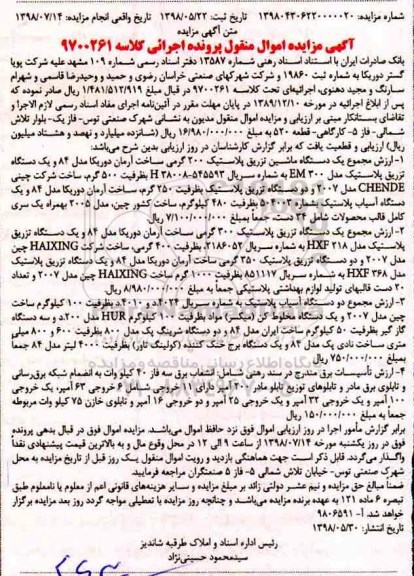 شماره مزایده: ۱۳۹۸۰۴۳۰۶۲۲۰۰۰۰۰۲۰ تاریخ ثبت: ۱۳۹۸/۰۵/۲۲ تاریخ واقعی انجام مزایده: ۱۳۹۸/۰۷/۱۴
متن آگهی مزایده
آگهی مزایده اموال منقول پرونده اجرائی کلاسه ۹۷۰۰۲۶۱
بانک صادرات ایران با استناد اسناد رهنی شماره ۱۳۵۸۷ دفتر اسناد رسمی شماره ۱۰۹ مشهد علیه شرکت پویا
گستر دوریکا به شماره ثبت ۱۹۸۶۰ و شهرکهای صنعتی خراسان رضوی و حمید و وحیدرضا قاسمی و شهرام
سارنگ و مجید دهنوی، اجرائیه‌ای تحت کلاسه ۹۷۰۰۲۶۱ در قبال مبلغ ۱/۴۸۱/۵۱۲/۹۱۹ ریال صادر نموده که
پس از ابلاغ اجرائیه در مورخه ۱۳۸۹/۱۲/۱۰ در پایان مهلت مقرر در آئین‌نامه اجرای مفاد اسناد رسمی لازم الاجرا و
تقاضای بستانکار مبنی بر ارزیابی و مزایده اموال منقول مدیون به نشانی شهرک صنعتی توس- فاز یک- بلوار تلاش
شمالی- فاز ۵- کارگاهی- قطعه ۵۲۰ به مبلغ ۱۶/۹۸۰/۰۰۰/۰۰۰ ریال (شانزده میلیارد و نهصد و هشتاد میلیون
ریال) ارزیابی و قطعیت یافت که برابر گزارش کارشناسان در روز ارزیابی بدین شرح می‌باشد:
۱- ارزش مجموع یک دستگاه ماشین تزریق پلاستیک ۲۰۰ گرمی ساخت آرمان دوریکا مدل ۸۴ و یک دستگاه
تزریق پلاستیک مدل EM ۳۰۰ به شماره سریال H ۳۸۰۰۸-۵۴۵۵۹۳ بظرفیت ۵۰۰ گرم، ساخت شرکت چینی
CHENDE مدل ۲۰۰۷ و دستگاه تزریق پلاستیک بظرفیت ۲۵۰ گرم، ساخت آرمان دوریکا مدل ۸۴ و یک
دستگاه آسیاب پلاستیک بشماره ۵۰۲۰ بظرفیت ۴۸۰ کیلوگرم، ساخت کشور چین، مدل ۲۰۰۵ بهمراه یک سری
کامل قالب محصولات شامل ۳۴ دست، جمعاً بمبلغ ۷/۱۰۰/۰۰۰/۰۰۰ ریال
۲- ارزش مجموع یک دستگاه تزریق پلاستیک ۳۰۰ گرمی ساخت آرمان دوریکا مدل ۸۴ و یک دستگاه تزریق
پلاستیک مدل HXF ۲۱۸ به شماره سریال ۲۱۸۶۰۵۲ بظرفیت ۴۰۰ گرمی، ساخت شرکت HAIXING چین
مدل ۲۰۰۷ و دو دستگاه تزریق پلاستیک ۳۵۰ گرمی ساخت آرمان دوریکا مدل ۸۴ و یک دستگاه تزریق پلاستیک
مدل HXF ۳۶۸ به شماره سریال ۸۵۱۱۱۷ بظرفیت ۱۰۰۰ گرم ساخت HAIXING چین مدل ۲۰۰۷ و تعداد
۲۰ دست قالبهای تولید لوازم بهداشتی پلاستیکی جمعاً به مبلغ ۸/۹۸۰/۰۰۰/۰۰۰ ریال
۳- ارزش مجموع دو دستگاه آسیاب پلاستیک به شماره سریال ۲۰۲۴د و ۴۰۱۰د بظرفیت ۱۰۰ کیلوگرم ساخت
چین مدل ۲۰۰۷ و یک دستگاه مخلوط کن (میکس) مواد بظرفیت ۱۰۰ کیلوگرم HUR مدل ۲۰۰د، و سه دستگاه
گاز گیر بظرفیت ۵۰ کیلوگرم ساخت ایران مدل ۸۴ و دو دستگاه شرینگ پک مدل ۸۰۰ بظرفیت ۶۰۰ و ۸۰۰ میلی
متری ساخت نادی پک مدل ۸۴ و یک دستگاه برج خنک کننده (کولینگ تاور) بظرفیت ۴۰۰۰ لیتر مدل ۸۴ جمعاً
بمبلغ ۷۵۰/۰۰۰/۰۰۰ ریال
۴- ارزش تأسیسات برق مندرج در سند رهنی شامل: انشعاب برق سه فاز ۴۰ کیلو وات به انضمام شبکه برق‌رسانی
و تابلوی برق مادر و تابلوهای توزیع تابلو مادر ۲۰۰ آمپر دارای ۱۱ خروجی شامل ۶ خروجی ۶۳ آمپر، یک خروجی
۱۰۰ آمپر و یک خروجی ۳۲ آمپر و یک خروجی ۲۵ آمپر و دو خروجی ۱۶ آمپر و تابلوی خازن ۷۵ کیلو وات مربوطه
جمعاً به مبلغ ۱۵۰/۰۰۰/۰۰۰ ریال
برابر گزارش مأمور اجرا در روز ارزیابی اموال فوق نزد حافظ اموال می‌باشد. مزایده اموال فوق در قبال بدهی پرونده
فوق در روز یکشنبه مورخه ۱۳۹۸/۰۷/۱۴ از ساعت ۹ الی ۱۲ در محل وقوع مال و به بالاترین قیمت پیشنهادی نقداً
واگذار می‌گردد. قابل ذکر است جهت هماهنگی بازدید و رویت اموال منقول یک روز قبل از تاریخ مزایده به محل
شهرک صنعتی توس- خیابان تلاش شمالی ۵- فاز ۵ صنعتگران مراجعه فرمایید.
ضمناً مبالغ حق مزایده و نیم عشر دولتی زائد بر مبلغ مزایده و سایر هزینه‌های قانونی اعم از معلوم یا نامعلوم طبق
تبصره ۶ ماده ۱۲۱ به عهده برنده مزایده می‌باشد و چنانچه روز مزایده با تعطیلی مواجه گردد روز بعد مزایده برگزار
خواهد شد. آ- ۹۸۰۶۵۹۱
تاریخ انتشار: ۱۳۹۸/۰۵/۳۰
رئیس اداره اسناد و املاک طرقبه شاندیز
سیدمحمود حسینی‌نژاد